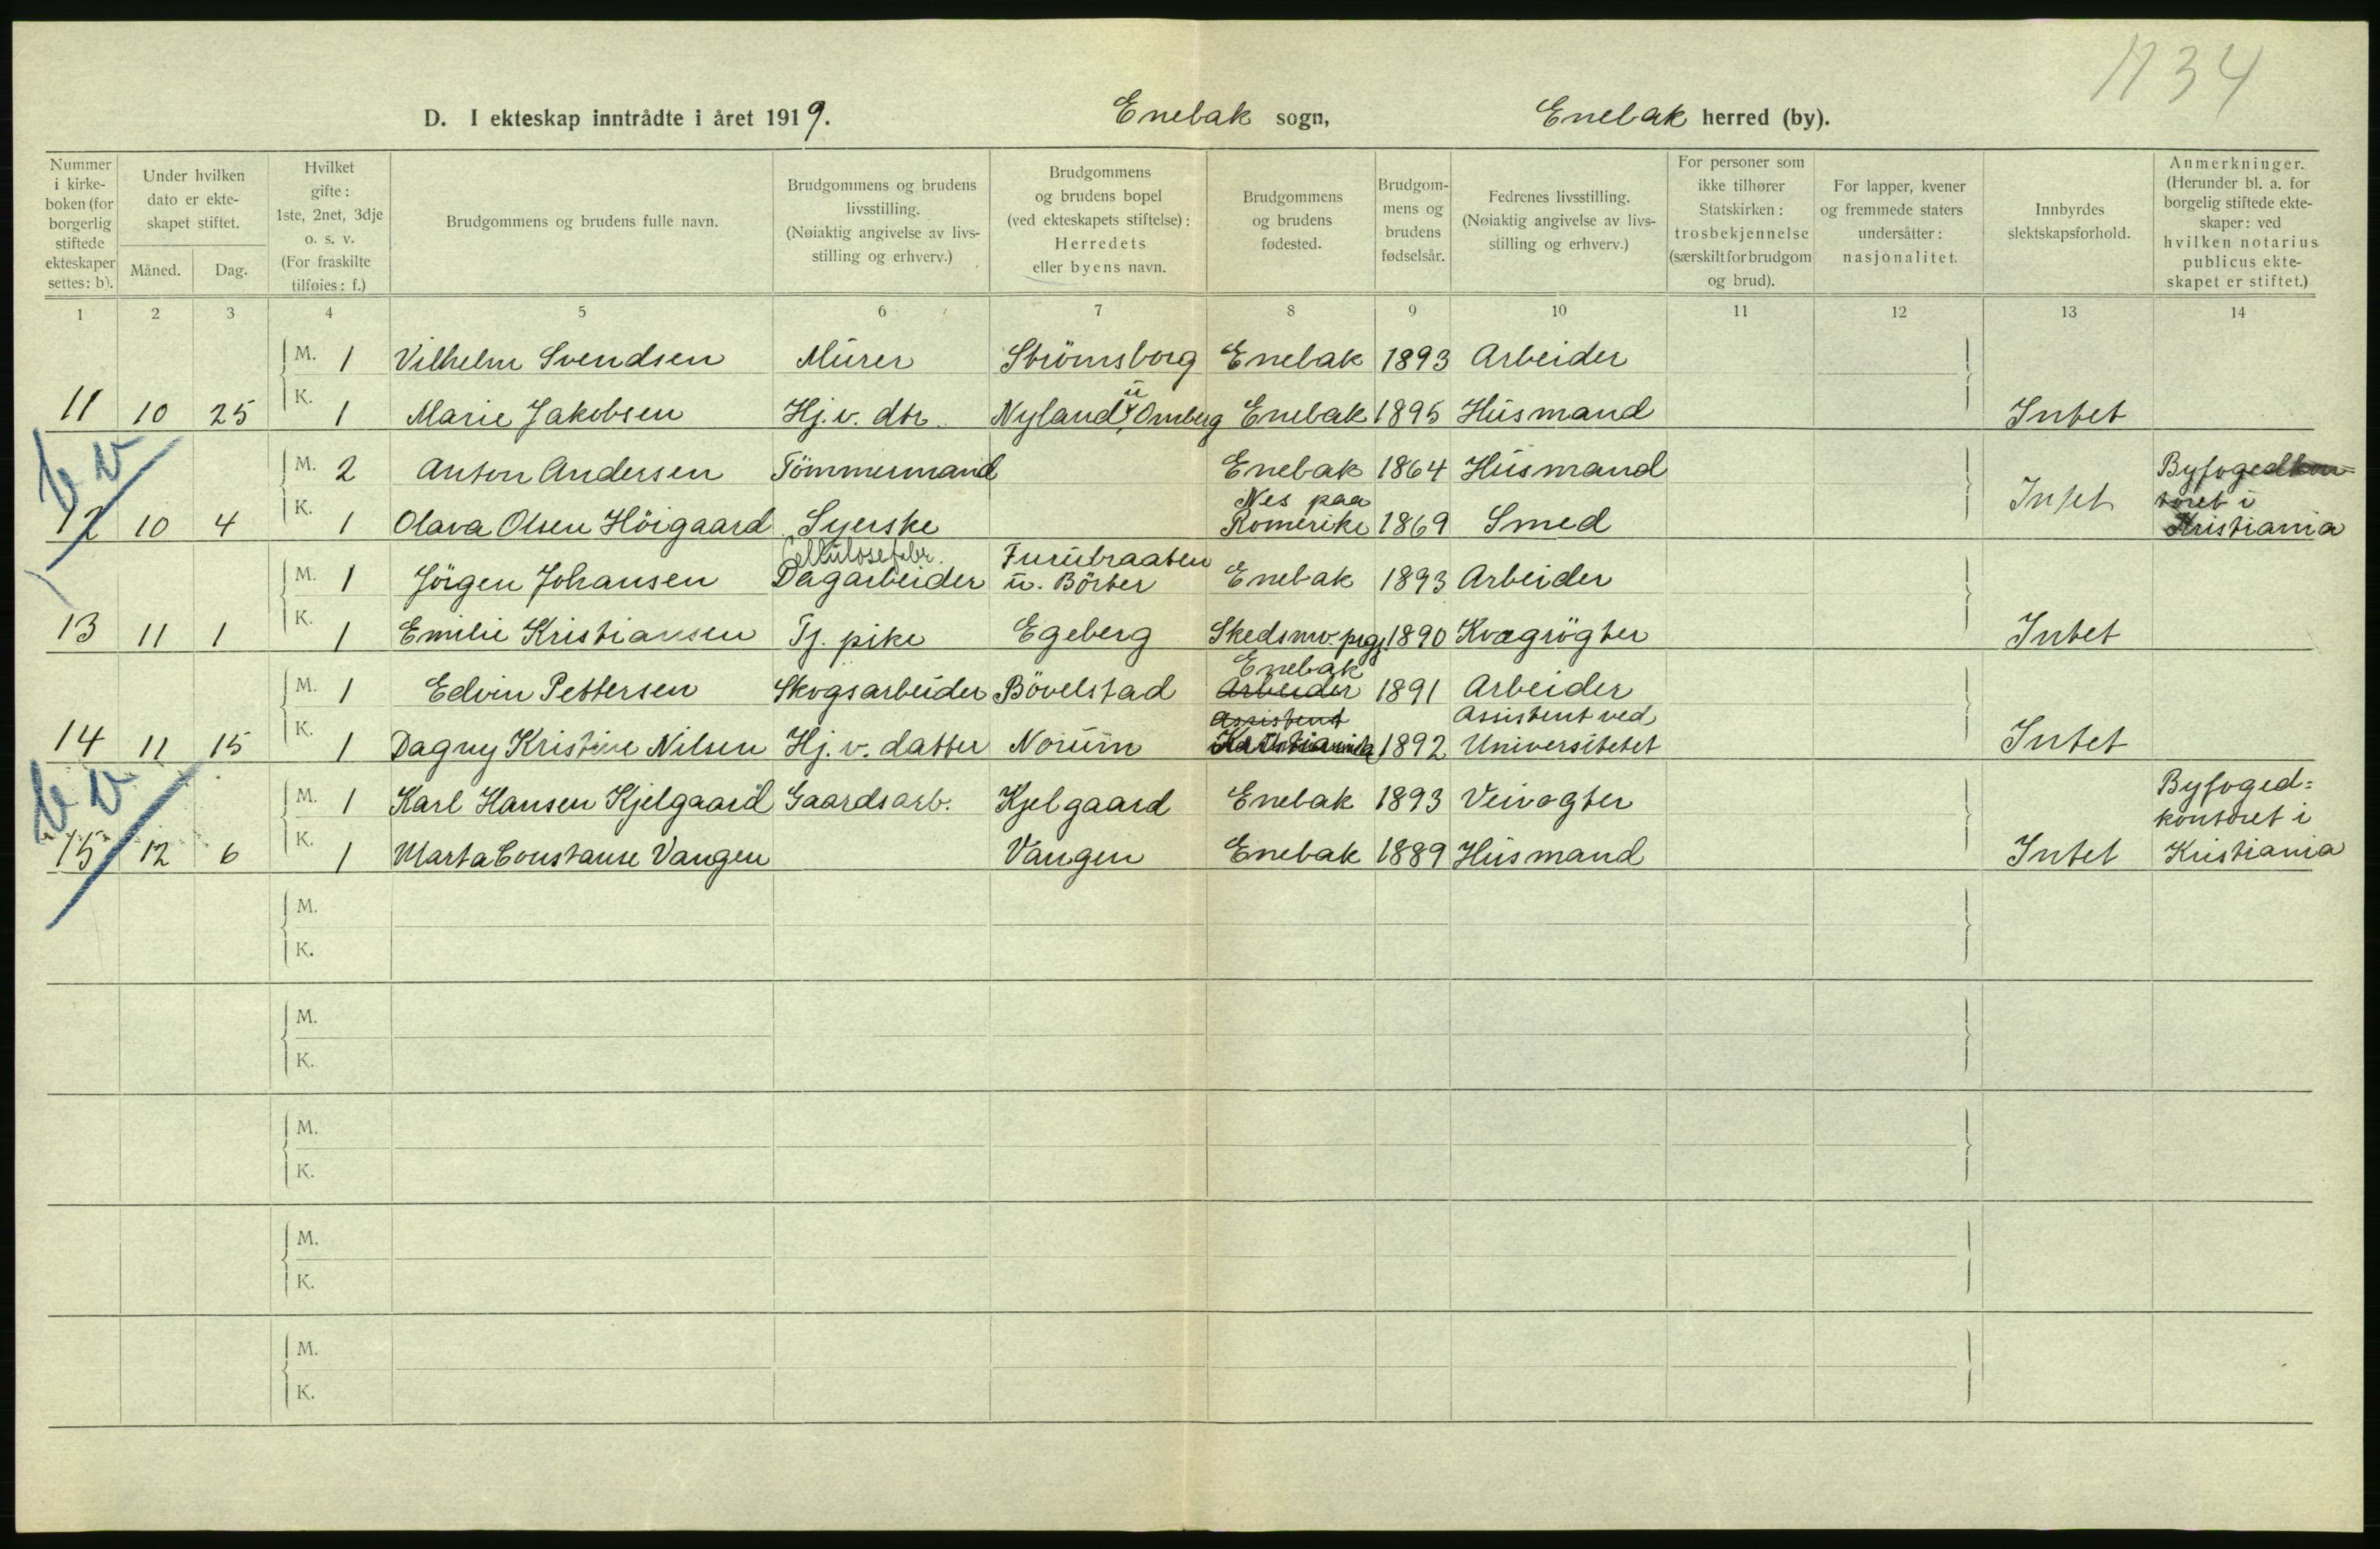 1134
D. I ekteskap inntrådte i året 1919. Enebak sogn, Enebak herred (by).
Nummer i kirke- boken (for borgerlig stiftede ekteskaper settes: b).
Under hvilken dato er ekte- skapet stiftet.
Måned. Dag.
Hvilket gifte: 1ste, 2net, 3dje o. s. v. (For fraskilte tilføies: f.)
Brudgommens og brudens fulle navn.
Brudgommens og brudens livsstilling. (Nøiaktig angivelse av livs- stilling og erhverv.)
Brudgommens og brudens bopel (ved ekteskapets stiftelse): Herredets eller byens navn.
Brudgommens og brudens fødested.
Brudgom- mens og brudens fødselsår.
Fedrenes livsstilling. (Nøiaktig angivelse av livs- stilling og erhverv.)
For personer som ikke tilhører Statskirken: trosbekjennelse (særskilt for brudgom og brud).
For lapper, kvener og fremmede staters undersåtter: nasjonalitet.
Innbyrdes slektskapsforhold.
Anmerkninger. (Herunder bl. a. for borgelig stiftede ekte- skaper: ved hvilken notarius publicus ekte- skapet er stiftet.)
1 2 3 4 5 6 7 8 9 10 11 12 13 14
M. 1 Vilhelm Svendsen Murer Strömsborg Enebak 1893 Arbeider
11 10 25 K. 1 Marie Jakobsen Hj. v. dtr. Nyland u/ Omberg Enebak 1895 Husmand Intet
b v
M. 2 Anton Andersen Tömmermand Enebak 1864 Husmand Byfogedkon=
12 10 4 K. 1 Olava Olsen Höigaard Syerske Nes paa Romerike 1869 Smed Intet toret i Kristiania
Cellulosefabr.
M. 1 Jörgen Johansen Dagarbeider Furubraaten u. Börter Enebak 1893 Arbeider
13 11 1 K. 1 Emilie Kristiansen Tj. pike Egeberg Skedsmo prgj. 1890 Kvægrögter Intet
Enebak
M. 1 Edvin Pettersen Skogsarbeider Bövelstad Arbeider 1891 Arbeider
Assistent Assistent ved
14 11 15 K. 1 Dagny Kristine Nilsen Hj. v. datter Norum Kristiania 1892 Universitetet Intet
b v
M. 1 Karl Hansen Kjelgaard Gaardsarb. Kjelgaard Enebak 1893 Veivogter Byfoged=
kontoret i
15 12 6 K. 1 Marta Constanse Vangen Vangen Enebak 1889 Husmand Intet Kristiania
M.
K.
M.
K.
M.
K.
M.
K.
M.
K.